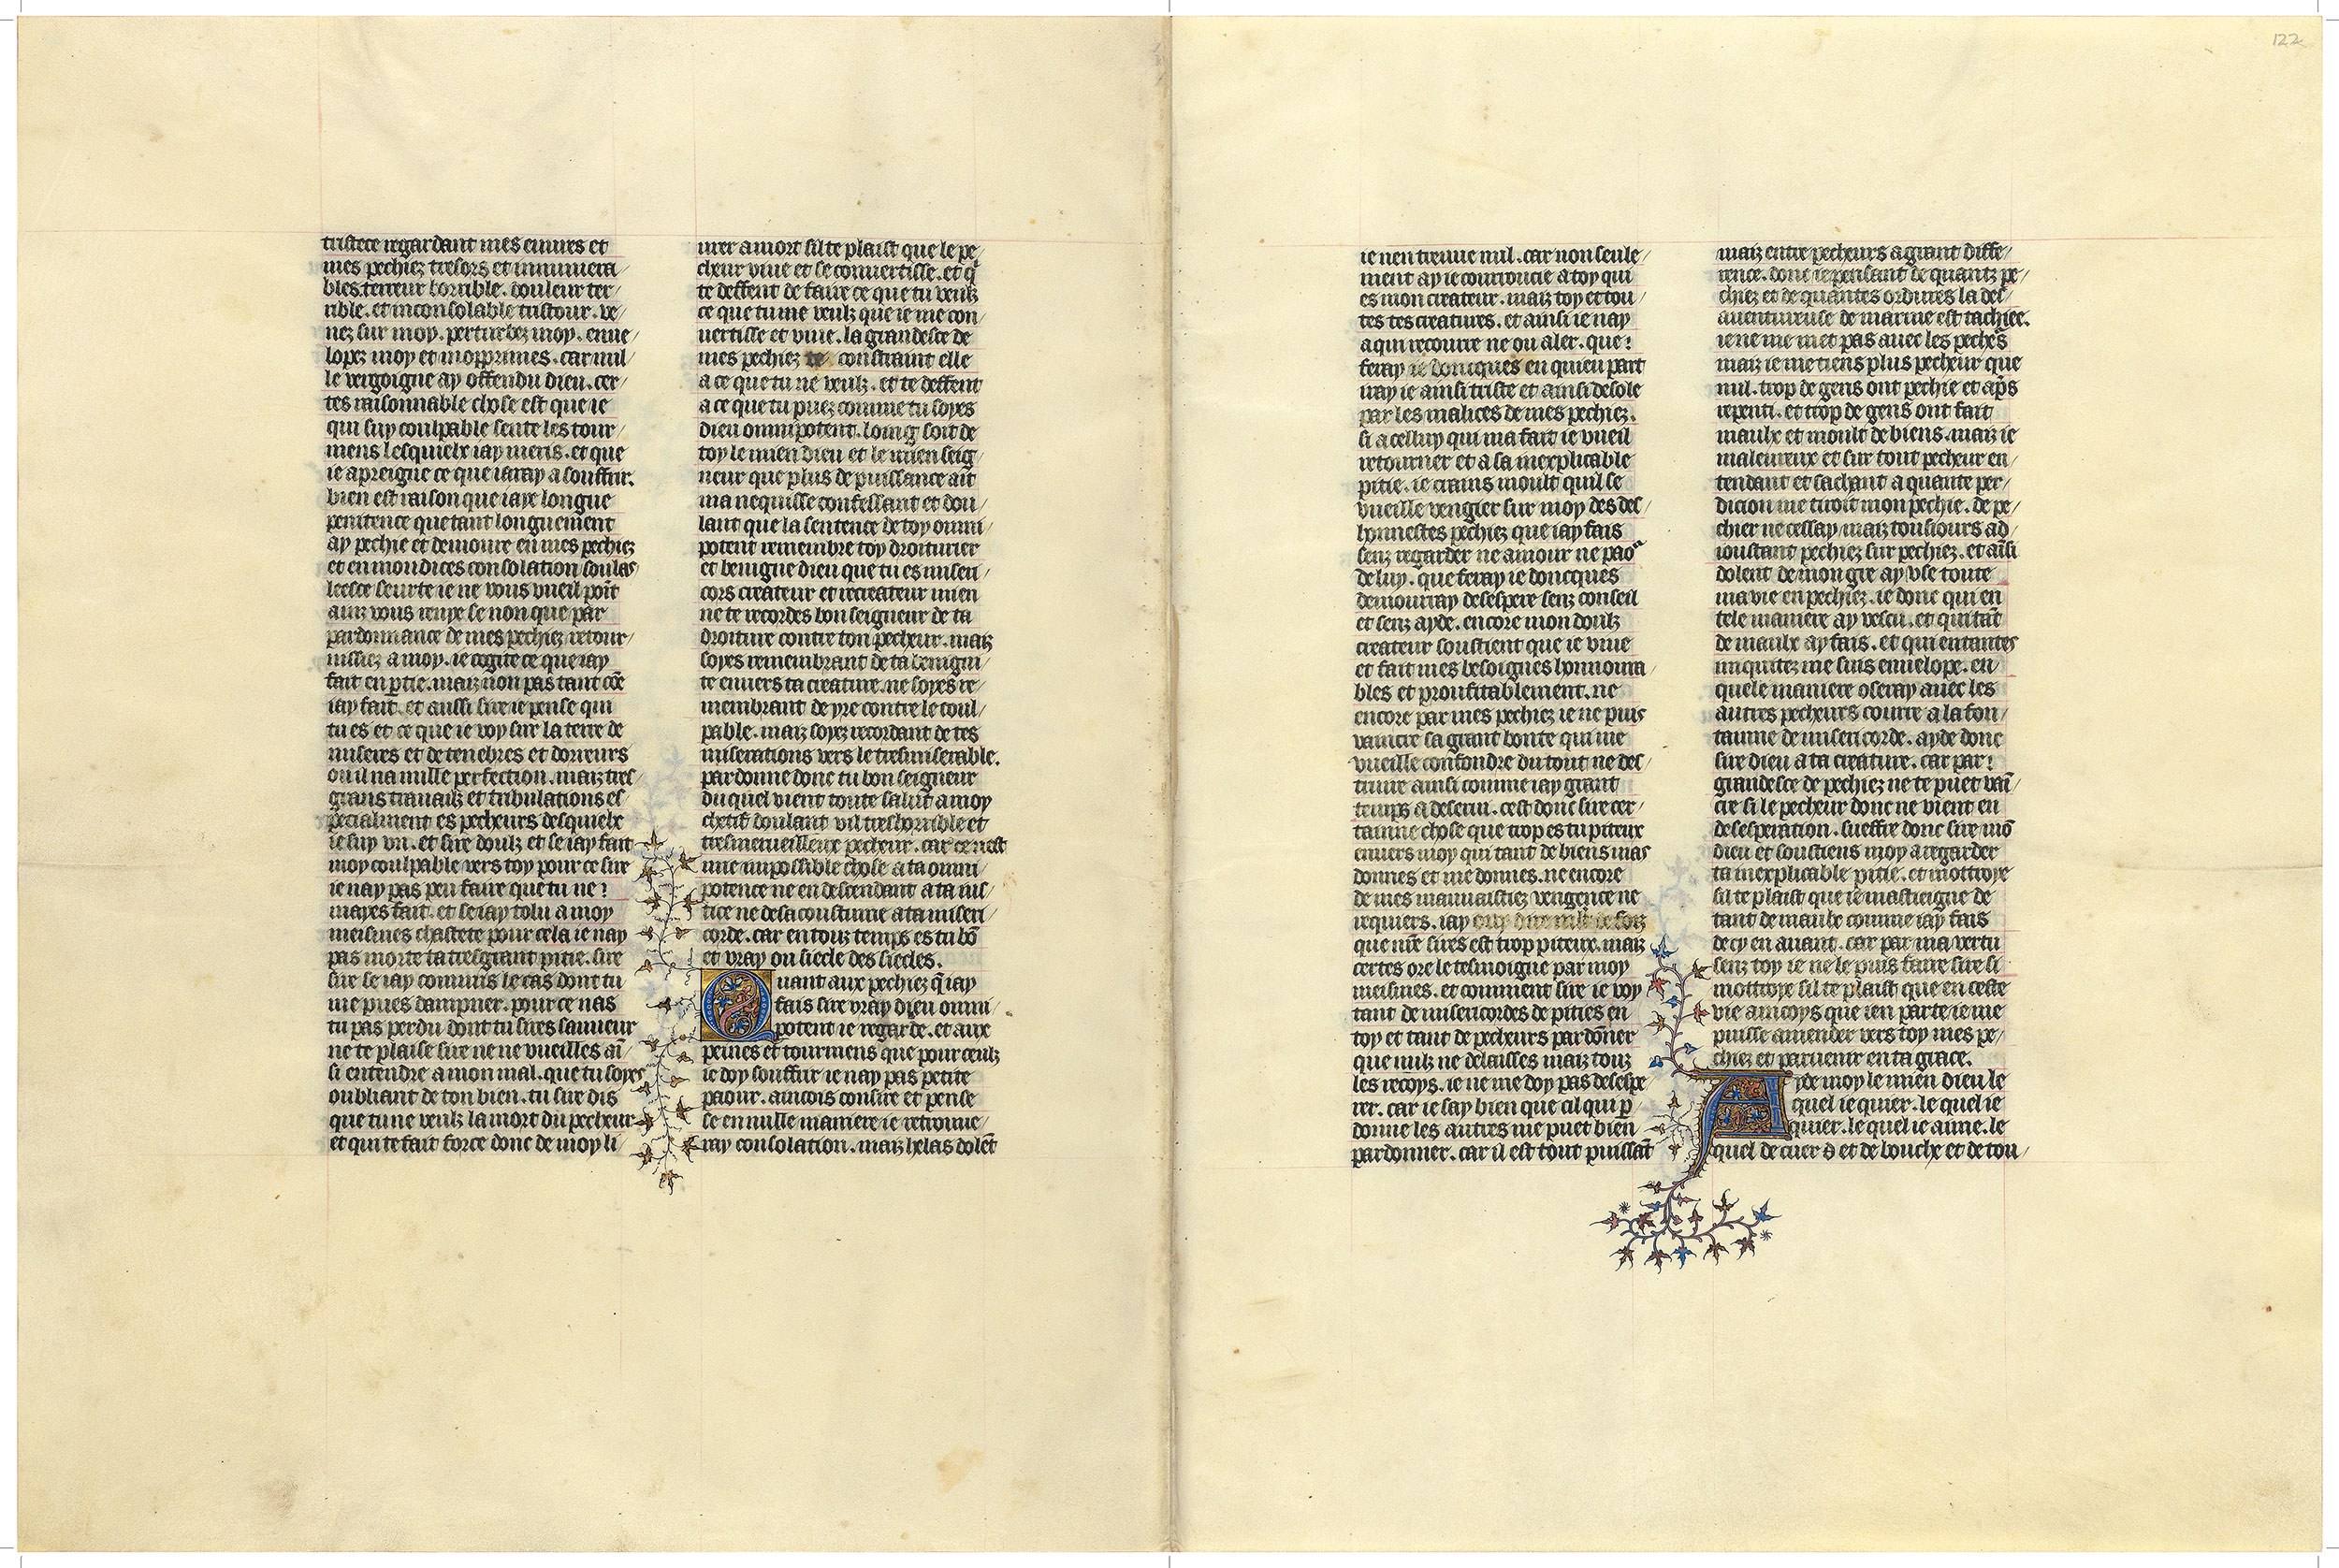 122
tristece regardant mes euures et
mes pechiez tresors et innumera/
bles. terreur horrible. douleur ter/
rible. et inconsolable tristour. ve/
nez sur moy. perturbez moy. enue/
lopez moy et mopprimes. car nul/
le vergoigne ay offendu dieu. cer/
tes raisonnable chose est que ie
qui suy coulpable sente les tour/
mens lesquielx iay meris. et que
ie apreigne ce que iaray a souffrir.
bien est raison que iaye longue
penitence que tant longuement
ay pechie et demoure en mes pechiez
et en mondices consolation soulas/
leesce seurte ie ne vous vueil poīt
auz vous renye se non que par
pardonnance de mes pechiez retour/
nissiez a moy. ie cogite ce que iay
fait en ꝑtie. maiz non pas tant cōe
iay fait. et aussi sire ie pense qui
tu es et ce que ie voy sur la terre de
miseres et de tenebres et dorreurs
ou il na nulle perfection. maiz tres
grans trauailz et tribulations es
pecialment es pecheurs desquielx
ie suy vn. et sire doulz et se iay fait
moy coulpable vers toy pour ce sire
ie nay pas peu faire que tu ne !
mayes fait. et se iay tolu a moy
meismes chastete pour cela ie nay
pas morte ta tresgrant pitie. sire
sire se iay commis le cas dont tu
me pues dampner. pour ce nas
tu pas perdu dont tu sires sauueur
ne te plaise sire ne ne vueilles aī/
si entendre a mon mal. que tu soyes
oubliant de ton bien. tu sire dis
que tu ne veulz la mort du pecheur
et qui te fait force donc de moy li/
urer a mort sil te plaist que le pe/
cheur viue et se conuertisse. et q̄
te deffent de faire ce que tu veulz
ce que tu me veulz que ie me con/
uertisse et viue. la grandesce de
mes pechiez te constraint elle
a ce que tu ne veulz. et te deffent
a ce que tu puez comme tu soyes
dieu omnipotent. loing soit de
toy le mien dieu et le mien seig/
neur que plus de puissance ait
ma nequisse confessant et dou/
lant que la sentence de toy omni/
potent remembre toy droiturier
et benigne dieu que tu es miseri/
cors createur et recreateur mien
ne te recordes bon seigneur de ta
droiture contre ton pecheur. maiz
soyes remembrant de ta benigni/
te enuers ta creature. ne soyes re/
membrant de yre contre le coul/
pable. maiz soyez recordant de tes
miserations vers le tresmiserable.
pardonne donc tu bon seigneur
du quel vient toute salut a moy
chetif doulant vil treshorrible et
tresmerueilleux pecheur. car ce nest
mie impossible chose a ta omni/
potence ne en descendant a ta ius/
tice ne desacoustume a ta miseri/
corde. car en touz temps es tu bō
et vray ou siecle des siecles.
Quant aux pechiez q̄ iay
fais sire vray dieu omni/
potent ie regarde. et aux
peines et tourmens que pour ceulz
ie doy souffrir ie nay pas petite
paour. aincois consire et pense
se en nulle maniere ie retrouue/
ray consolation. maiz helas dolēt
ie nen treuue nul. car non seule/
ment ay ie courroucie a toy qui
es mon createur. maiz toy et tou/
tes tes creatures. et ainsi ie nay
a qui recourre ne ou aler. que !
feray ie doncques en quieu part
iray ie ainsi triste et ainsi desole
par les malices de mes pechiez.
si a celluy qui ma fait ie vueil
retourner et a sa inexplicable
pitie. ie crains moult quil se
vueille vengier sur moy des des/
honnestes pechiez que iay fais
senz regarder ne amour ne paor
de luy. que feray ie doncques
demourray desespere senz conseil
et senz ayde. encore mon doulz
createur soustient que ie viue
et fait mes besoignes honnoura/
bles et proufitablement. ne
encore par mes pechiez ie ne puis
vaincre sa grant bonte qui me
vueille confondre du tout ne des/
truire ainsi comme iay grant
temps a deserui. cest donc sire cer/
tainne chose que trop es tu piteux
enuers moy qui tant de biens mas
donnes et me donnes. ne encore
de mes mauuaistiez vengence ne
requiers. iay ouy dire mlt de foiz
que nr̄e sires est trop piteux. maiz
certes ore le tesmoigne par moy
meismes. et comment sire ie voy
tant de misericordes de pities en
toy et tant de pecheurs pardōner
que nulz ne delaisses maiz touz
les recoys. ie ne me doy pas desespe/
rer. car ie say bien que cil qui ꝑ
donne les autres me puet bien
pardonner. car il est tout puissāt
maiz entre pecheurs a grant diffe/
rence. donc ie pensant de quantz pe/
chiez et de quantes ordures la des/
auentureuse de marme est tachiee.
ie ne me met pas auec les pechēs
maiz ie me tiens plus pecheur que
nul. trop de gens ont pechie et ap̄s
repenti. et trop de gens ont fait
maulx et moult de biens. maiz ie
maleureux et sur tout pecheur en/
tendant et sachant a quante per/
dicion me tiroit mon pechie. de pe/
chier ne cessay maiz tousiours ad/
ioustant pechiez sur pechiez. et aīsi
dolent de mon gre ay vse toute
ma vie en pechiez. ie donc qui en
tele maniere ay vescu. et qui tāt
de maulx ay fais. et qui en tantes
iniquitez me suis enuelope. en/
quele maniere oseray auec les
autres pecheurs courre a la fon/
taine de misericorde. ayde donc
sire dieu a ta creature. car par !
grandesce de pechiez ne te puet vaī/
cre si le pecheur donc ne vient en
desesperation. sueffre donc sire mō
dieu et soustiens moy a regarder
ta inexplicable pitie. et mottroye
sil te plaist que ie mastieigne de
tant de maulx comme iay fais
de cy en auant. car par ma vertu
senz toy ie ne le puis faire sire si
mottroye sil te plaist que en ceste
vie aincoys que ien parte ie me
puisse amender vers toy mes pe/
chiez et paruenir en ta grace.
Ayde moy le mien dieu le
quel ie quier. le quel ie
quier. le quel ie aime. le
quel de cuer et de bouche et de tou/